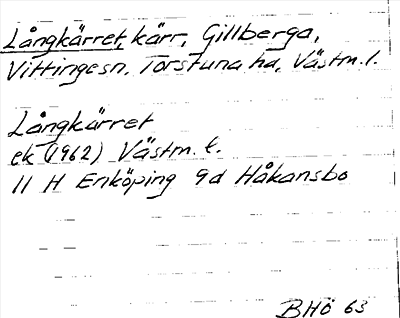 Långkärret, kärr, Gillberga,
Vittingesn, Torstuna hd, Västm. l.
Långkärret
ek (1962) Västm. l.
11 H Enköping 9d Håkansbo
BHÖ 63